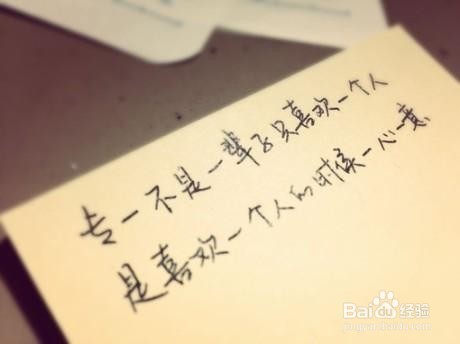 专一不是一辈子只喜欢一个人
是喜欢一个人的时候一心一意
Baidu经验
jingyan.baidu.com